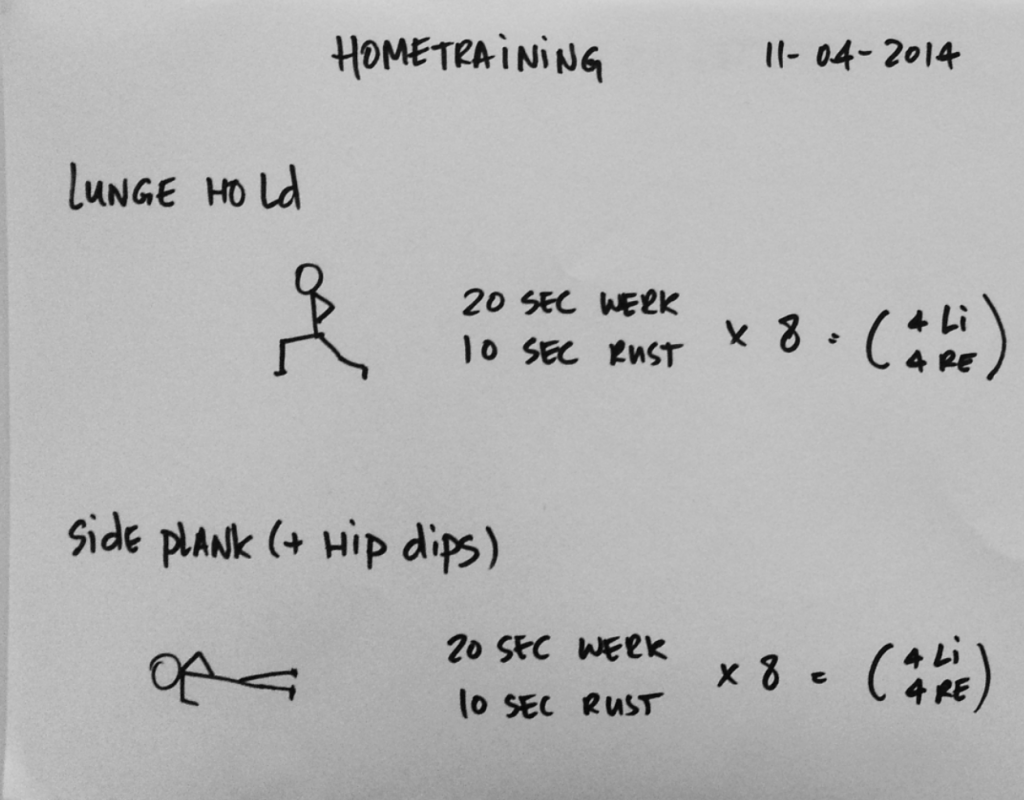 HOMETRAINING 11-04-2014
LUNGE HOLD
20 SEC WERK
10 SEC RUST
x 8 = (4 Li
4 RE)
SidE PLANK (+ Hip dips)
20 SEC WERK
10 SEC RUST
x 8 = (4 Li
4 RE)